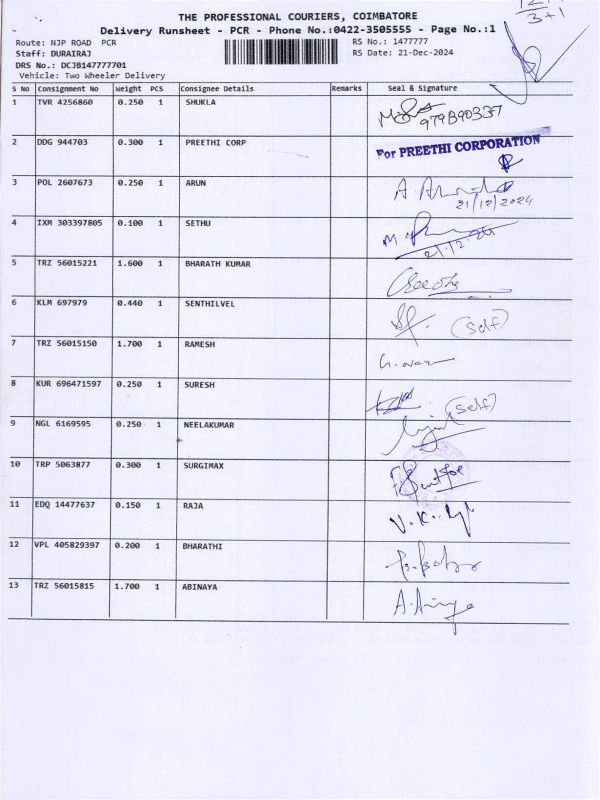 THE PROFESSIONAL COURIERS, COIMBATORE
Delivery Runsheet - PCR - Phone No.:0422-3505555 - Page No.:1
3+1
Route: NJP ROAD PCR
RS No.: 1477777
Staff: DURAIRAJ
RS Date: 21-Dec-2024
DRS No.: DCJB147777701
Vehicle: Two Wheeler Delivery
S No Consignment No Weight PCS Consignee Details Remarks Seal & Signature
1 TVR 4256860 0.250 1 SHUKLA
2 DDG 944703 0.300 1 PREETHI CORP For PREETHI CORPORATION
3 POL 2607673 0.250 1 ARUN
21/12/2024
4 IXM 303397805 0.100 1 SETHU
21.12.24
5 TRZ 56015221 1.600 1 BHARATH KUMAR
6 KLM 697979 0.440 1 SENTHILVEL (self)
7 TRZ 56015150 1.700 1 RAMESH
8 KUR 696471597 0.250 1 SURESH (self)
9 NGL 6169595 0.250 1 NEELAKUMAR
10 TRP 5063877 0.300 1 SURGIMAX
11 EDQ 14477637 0.150 1 RAJA
12 VPL 405829397 0.200 1 BHARATHI
13 TRZ 56015815 1.700 1 ABINAYA